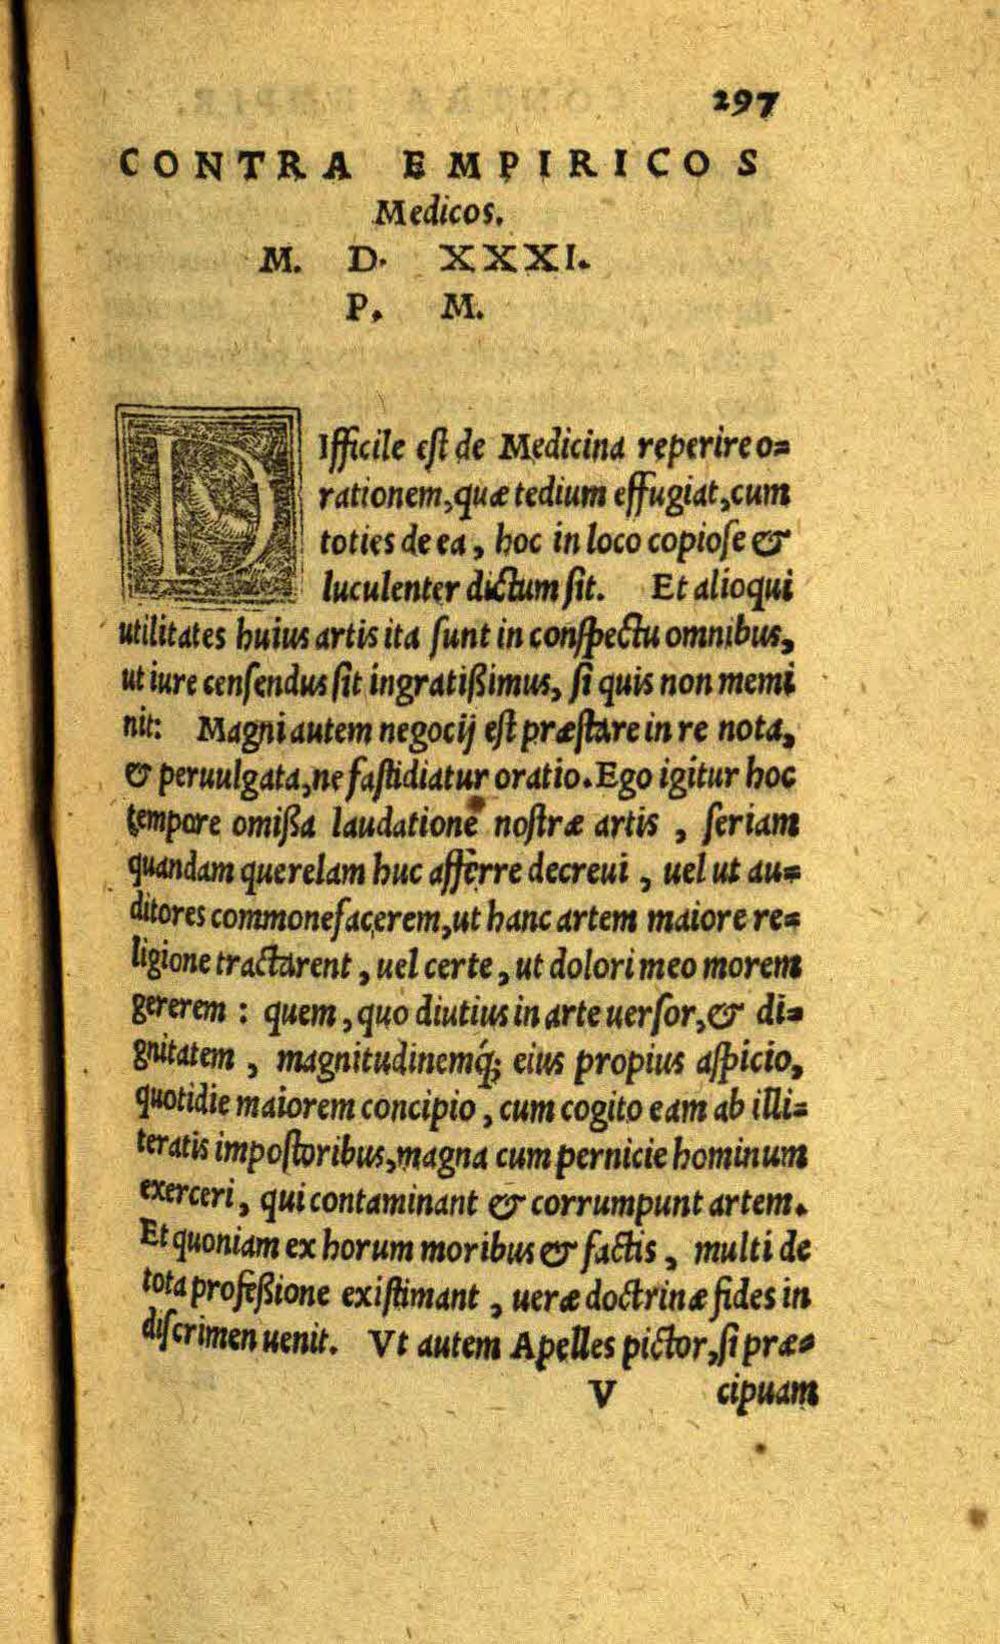 297
CONTRA EMPIRICOS
Medicos.
M. D. XXXI.
P. M.
DIfficile eſt de Medicina reperire o=
rationem, quæ tedium effugiat, cum
toties de ea, hoc in loco copioſe &
luculenter dictum ſit. Et alioqui
utilitates huius artis ita ſunt in conſpectu omnibus,
ut iure cenſendus ſit ingratißimus, ſi quis non memi
nit: Magni autem negocij eſt præſtare in re nota,
& peruulgata, ne faſtidiatur oratio. Ego igitur hoc
tempore omißa laudatione noſtræ artis, ſeriam
quandam querelam huc afferre decreui, uel ut au=
ditores commonefacerem, ut hanc artem maiore re=
ligione tractarent, uel certe, ut dolori meo morem
gererem: quem, quo diutius in arte uerſor, & di=
gnitatem, magnitudinemq́; eius propius aſpicio,
quotidie maiorem concipio, cum cogito eam ab illi=
teratis impoſtoribus, magna cum pernicie hominum
exerceri, qui contaminant & corrumpunt artem.
Et quoniam ex horum moribus & factis, multi de
tota profeßione exiſtimant, ueræ doctrinæ fides in
diſcrimen uenit. Vt autem Apelles pictor, ſi præ=
V cipuam